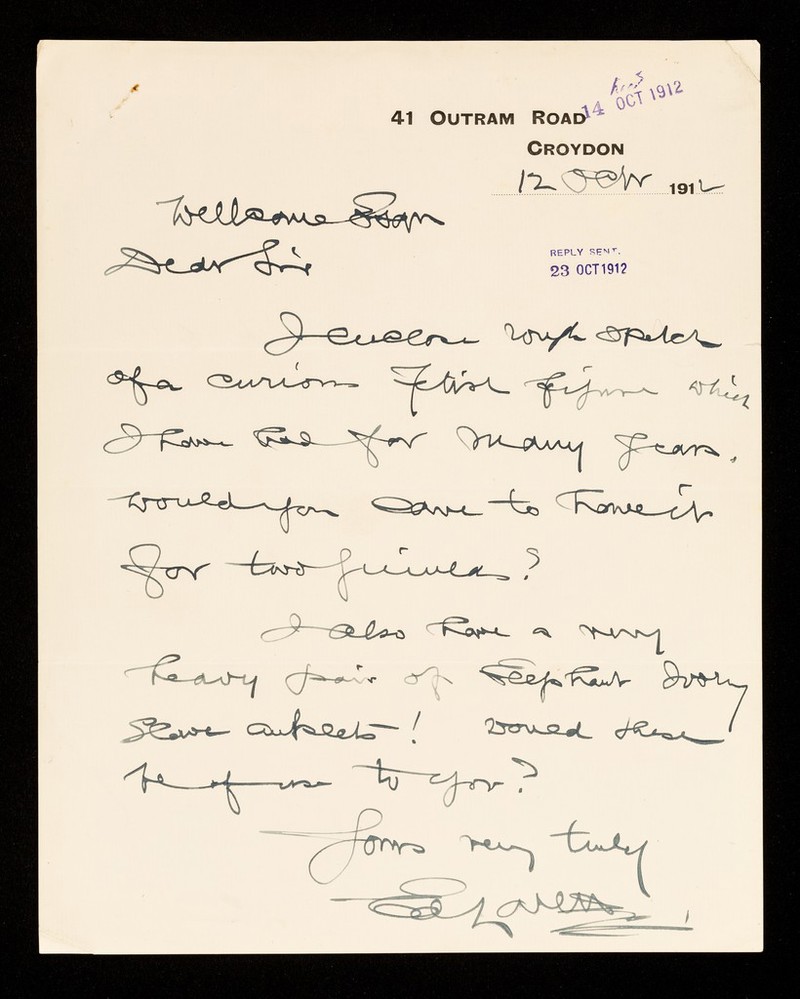 14 OCT 1912
41 OUTRAM ROAD
CROYDON
12 Octr 1912
Wellcome Esqr
Dear Sir
REPLY SENT.
23 OCT 1912
I enclose rough sketch
of a curious Fetish figure which
I have had for many years.
would you care to have it
for two guineas?
I also have a very
heavy pair of Elephant Ivory
Slave anklets! would these
be of use to you?
Yours very truly